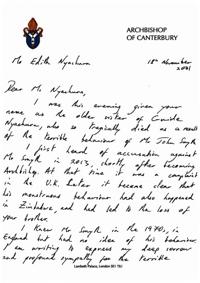 ARCHBISHOP
OF CANTERBURY
Ms Edith Nyachuru 18th November
2021
Dear Ms Nyachuru,
I was this evening given your
name as the older sister of Guide
Nyachuru, who so tragically died as a result
of the terrible behaviour of Mr John Smyth
I first heard of accusation against
Mr Smyth in 2013, shortly after becoming
Archbishop. At that time it was a complaint
in the U.K. Later it became clear that
his monstrous behaviour had also happened
in Zimbabwe and had led to the loss of
your brother.
I knew Mr Smyth in the 1970s, in
England but had no idea of his behaviour.
I am writing to express my deep sorrow
and profound sympathy for the terrible
Lambeth Palace, London SE1 7JU